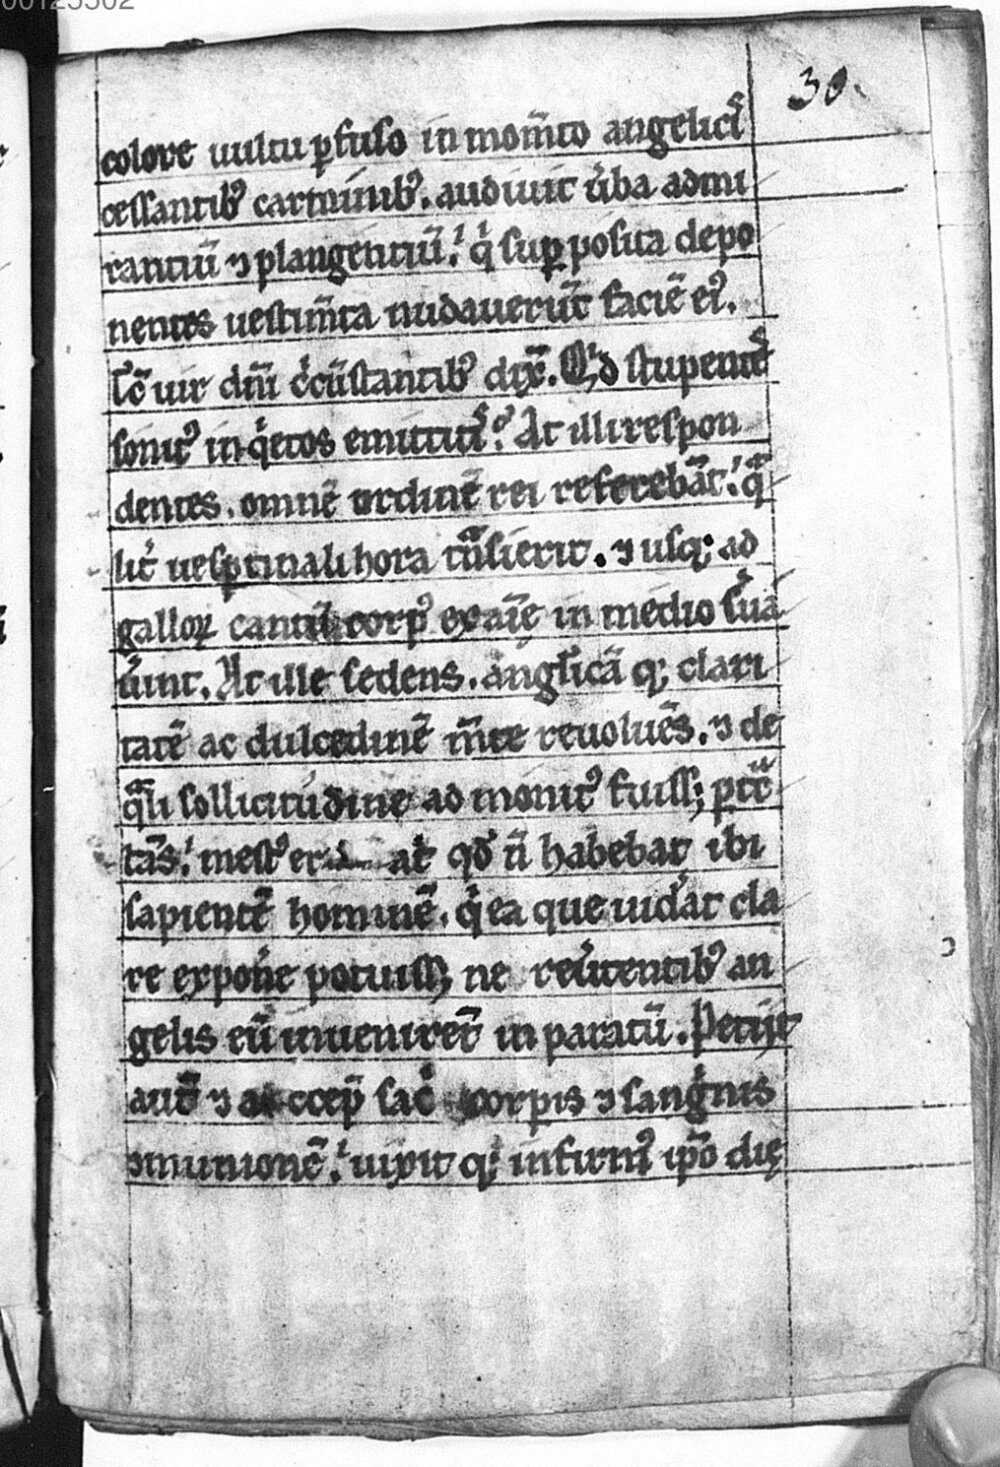 00125502
30.
colore uultu ꝑfuso in mom̄to angelicꝭ
cessantibꝰ carminibꝰ. audiuit ũba admi
rantiū ⁊ plangentiū. qͥ suꝑposita depo
nentes uestim̄ta nudauerūt faciē eiꝰ.
Tc̄ uir dn̄i cͥcūstantibꝰ dix̄. Qͥd stupentes
sonitꝰ inqͥetos emittitꝭ? At illi respon
dentes. omnē ordinē rei referebāt. qͣ
lit̓ uesꝑtinali hora tn̄sierit. ⁊ usqꝫ ad
galloꝝ cantū corpꝰ exaīe in medio s̓ua
ũint. At ille sedens. anglicā qꝫ clari
tatē ac dulcedinē m̄te reuoluēs. ⁊ de
qͣli sollicitudine ad monitꝰ fuissꝫ ꝑtͣc
tās. mestꝰ at̓ qđ n̄ habebat ibi
sapientē hominē. qͥ ea que uid̓at cla
re expon̓e potuissꝫ ne reũtentibꝰ an
gelis eū inuenirēt in paratū. Petijt
aut̄ ⁊ accep̄ sac̓ corꝑis ⁊ sangͥnis
ꝯmunionē. uixit qꝫ infirmꝰ ip̄o die